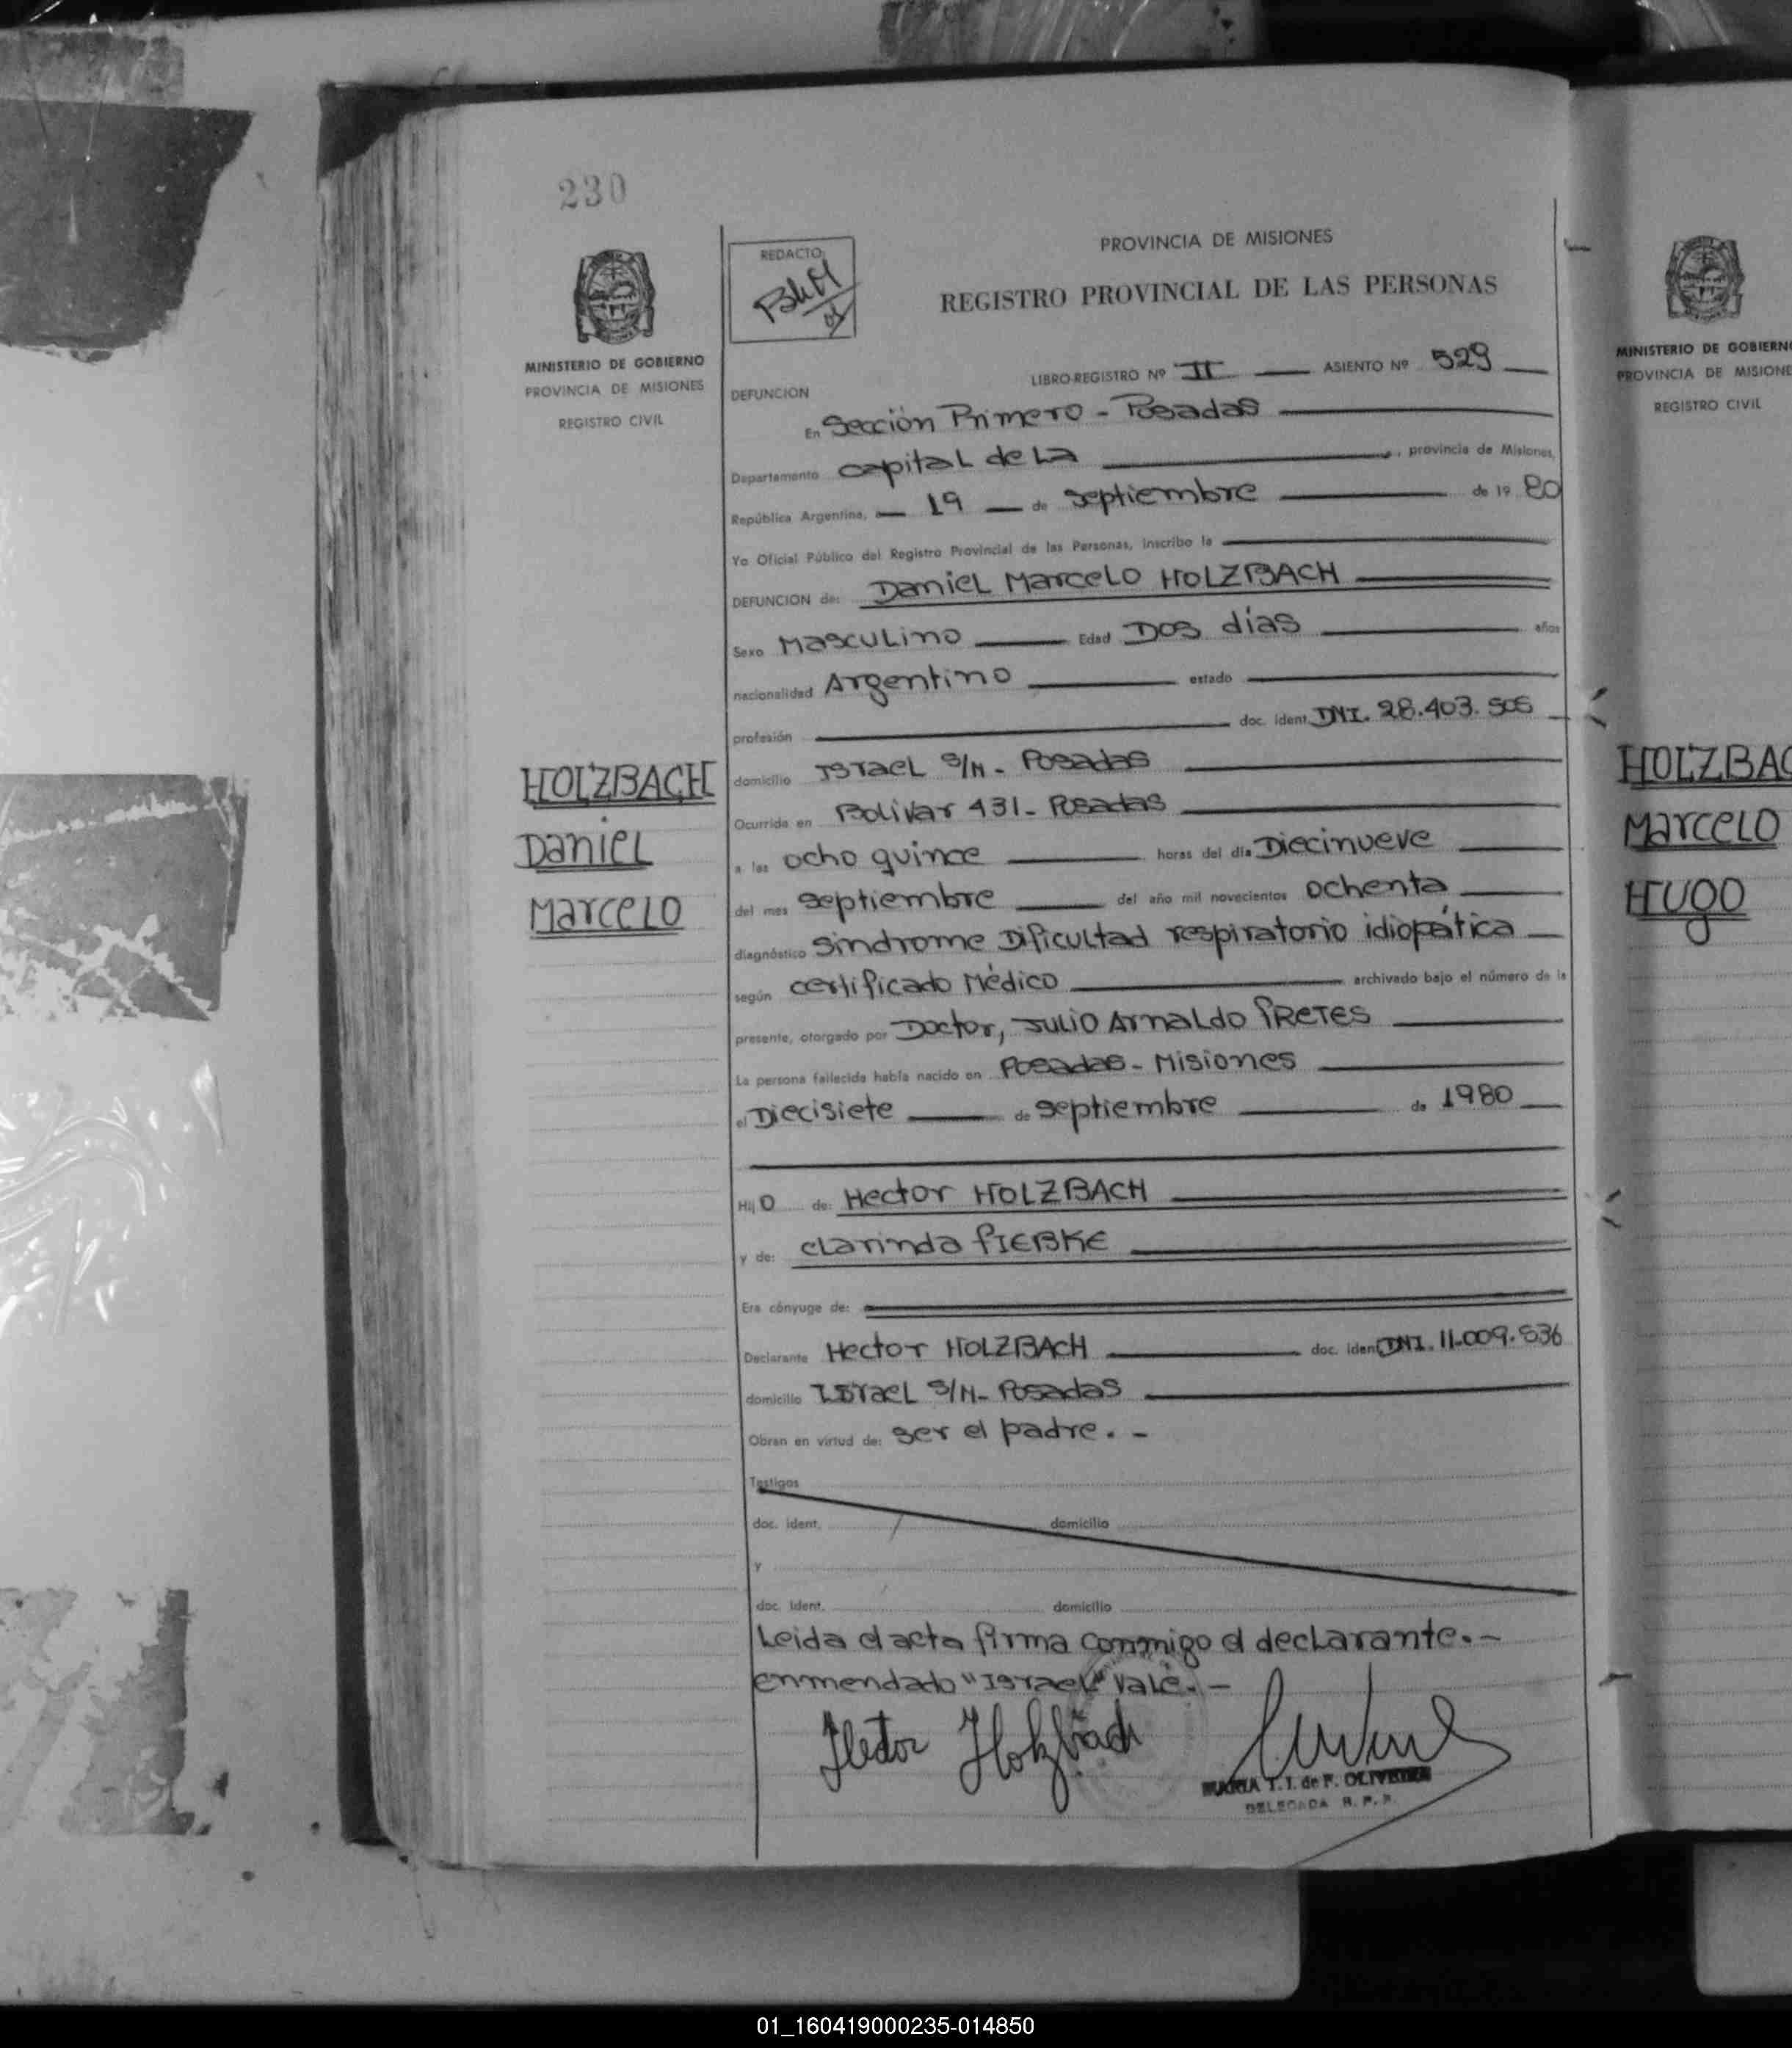 230
MINISTERIO DE GOBIERNO
PROVINCIA DE MISIONES
REGISTRO CIVIL
HOLZBACH
Daniel
Marcelo
REDACTO:
PROVINCIA DE MISIONES
REGISTRO PROVINCIAL DE LAS PERSONAS
LIBRO-REGISTRO Nº II ASIENTO Nº 529
DEFUNCION
En Sección Primero - Posadas
Departamento Capital de La , provincia de Misiones,
República Argentina, 19 de septiembre de 19 80
Yo Oficial Público del Registro Provincial de las Personas, inscribo la
DEFUNCION de: Daniel Marcelo HOLZBACH
Sexo Masculino Edad Dos días años
nacionalidad Argentino estado
profesión doc. ident. DNI. 28.403.505
domicilio Israel S/N - Posadas
Ocurrida en Bolivar 431 - Posadas
a las ocho quince horas del día Diecinueve
del mes septiembre del año mil novecientos ochenta
diagnóstico Sindrome Dificultad respiratorio idiopática
según certificado Médico archivado bajo el número de la
presente, otorgado por Doctor, Julio Arnaldo PRETES
La persona fallecida había nacido en Posadas - Misiones
el Diecisiete de septiembre de 1980
Hijo de: Hector HOLZBACH
y de: Clarinda PIEBKE
Era cónyuge de:
Declarante Hector HOLZBACH doc. ident. DNI. 11.009.536
domicilio Israel S/N - Posadas
Obran en virtud de: ser el padre. -
Testigos
doc. ident. domicilio
y
doc. ident. domicilio
Leida el acta firma conmigo el declarante. -
enmendado "Israel" Vale. -
Hector Holzbach
MARIA T. I. de F. OLIVEIRA
DELEGADA R. P. P.
MINISTERIO DE GOBIERN
PROVINCIA DE MISIONE
REGISTRO CIVIL
HOLZBAC
Marcelo
Hugo
01_160419000235-014850